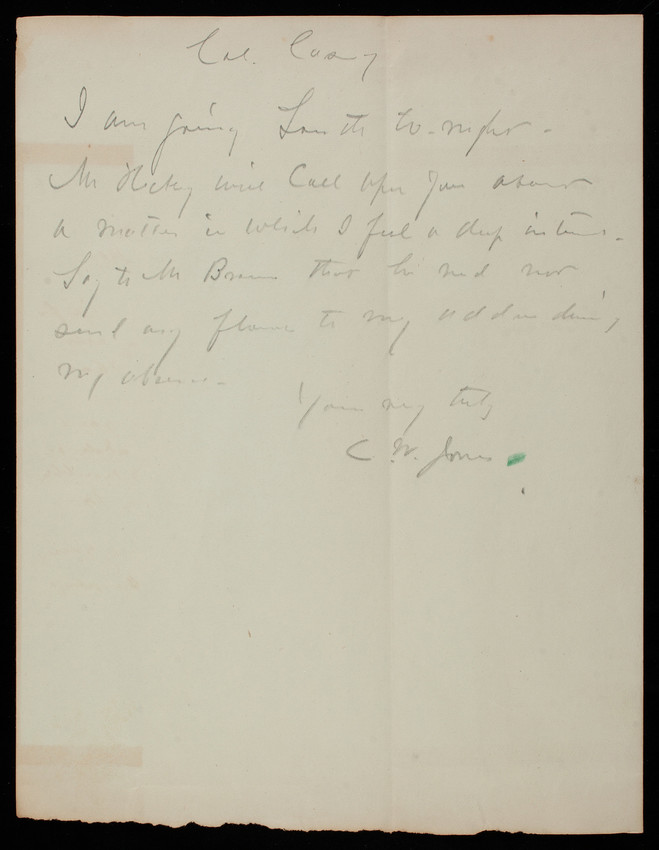 Col. Casey
I am going South to-night.
Mr Hickey will Call upon you about
a matter in which I feel a deep interest.
Say to Mr Brown that he need not
send any flowers to my address during
my absence.
Yours very truly
C. W. Jones